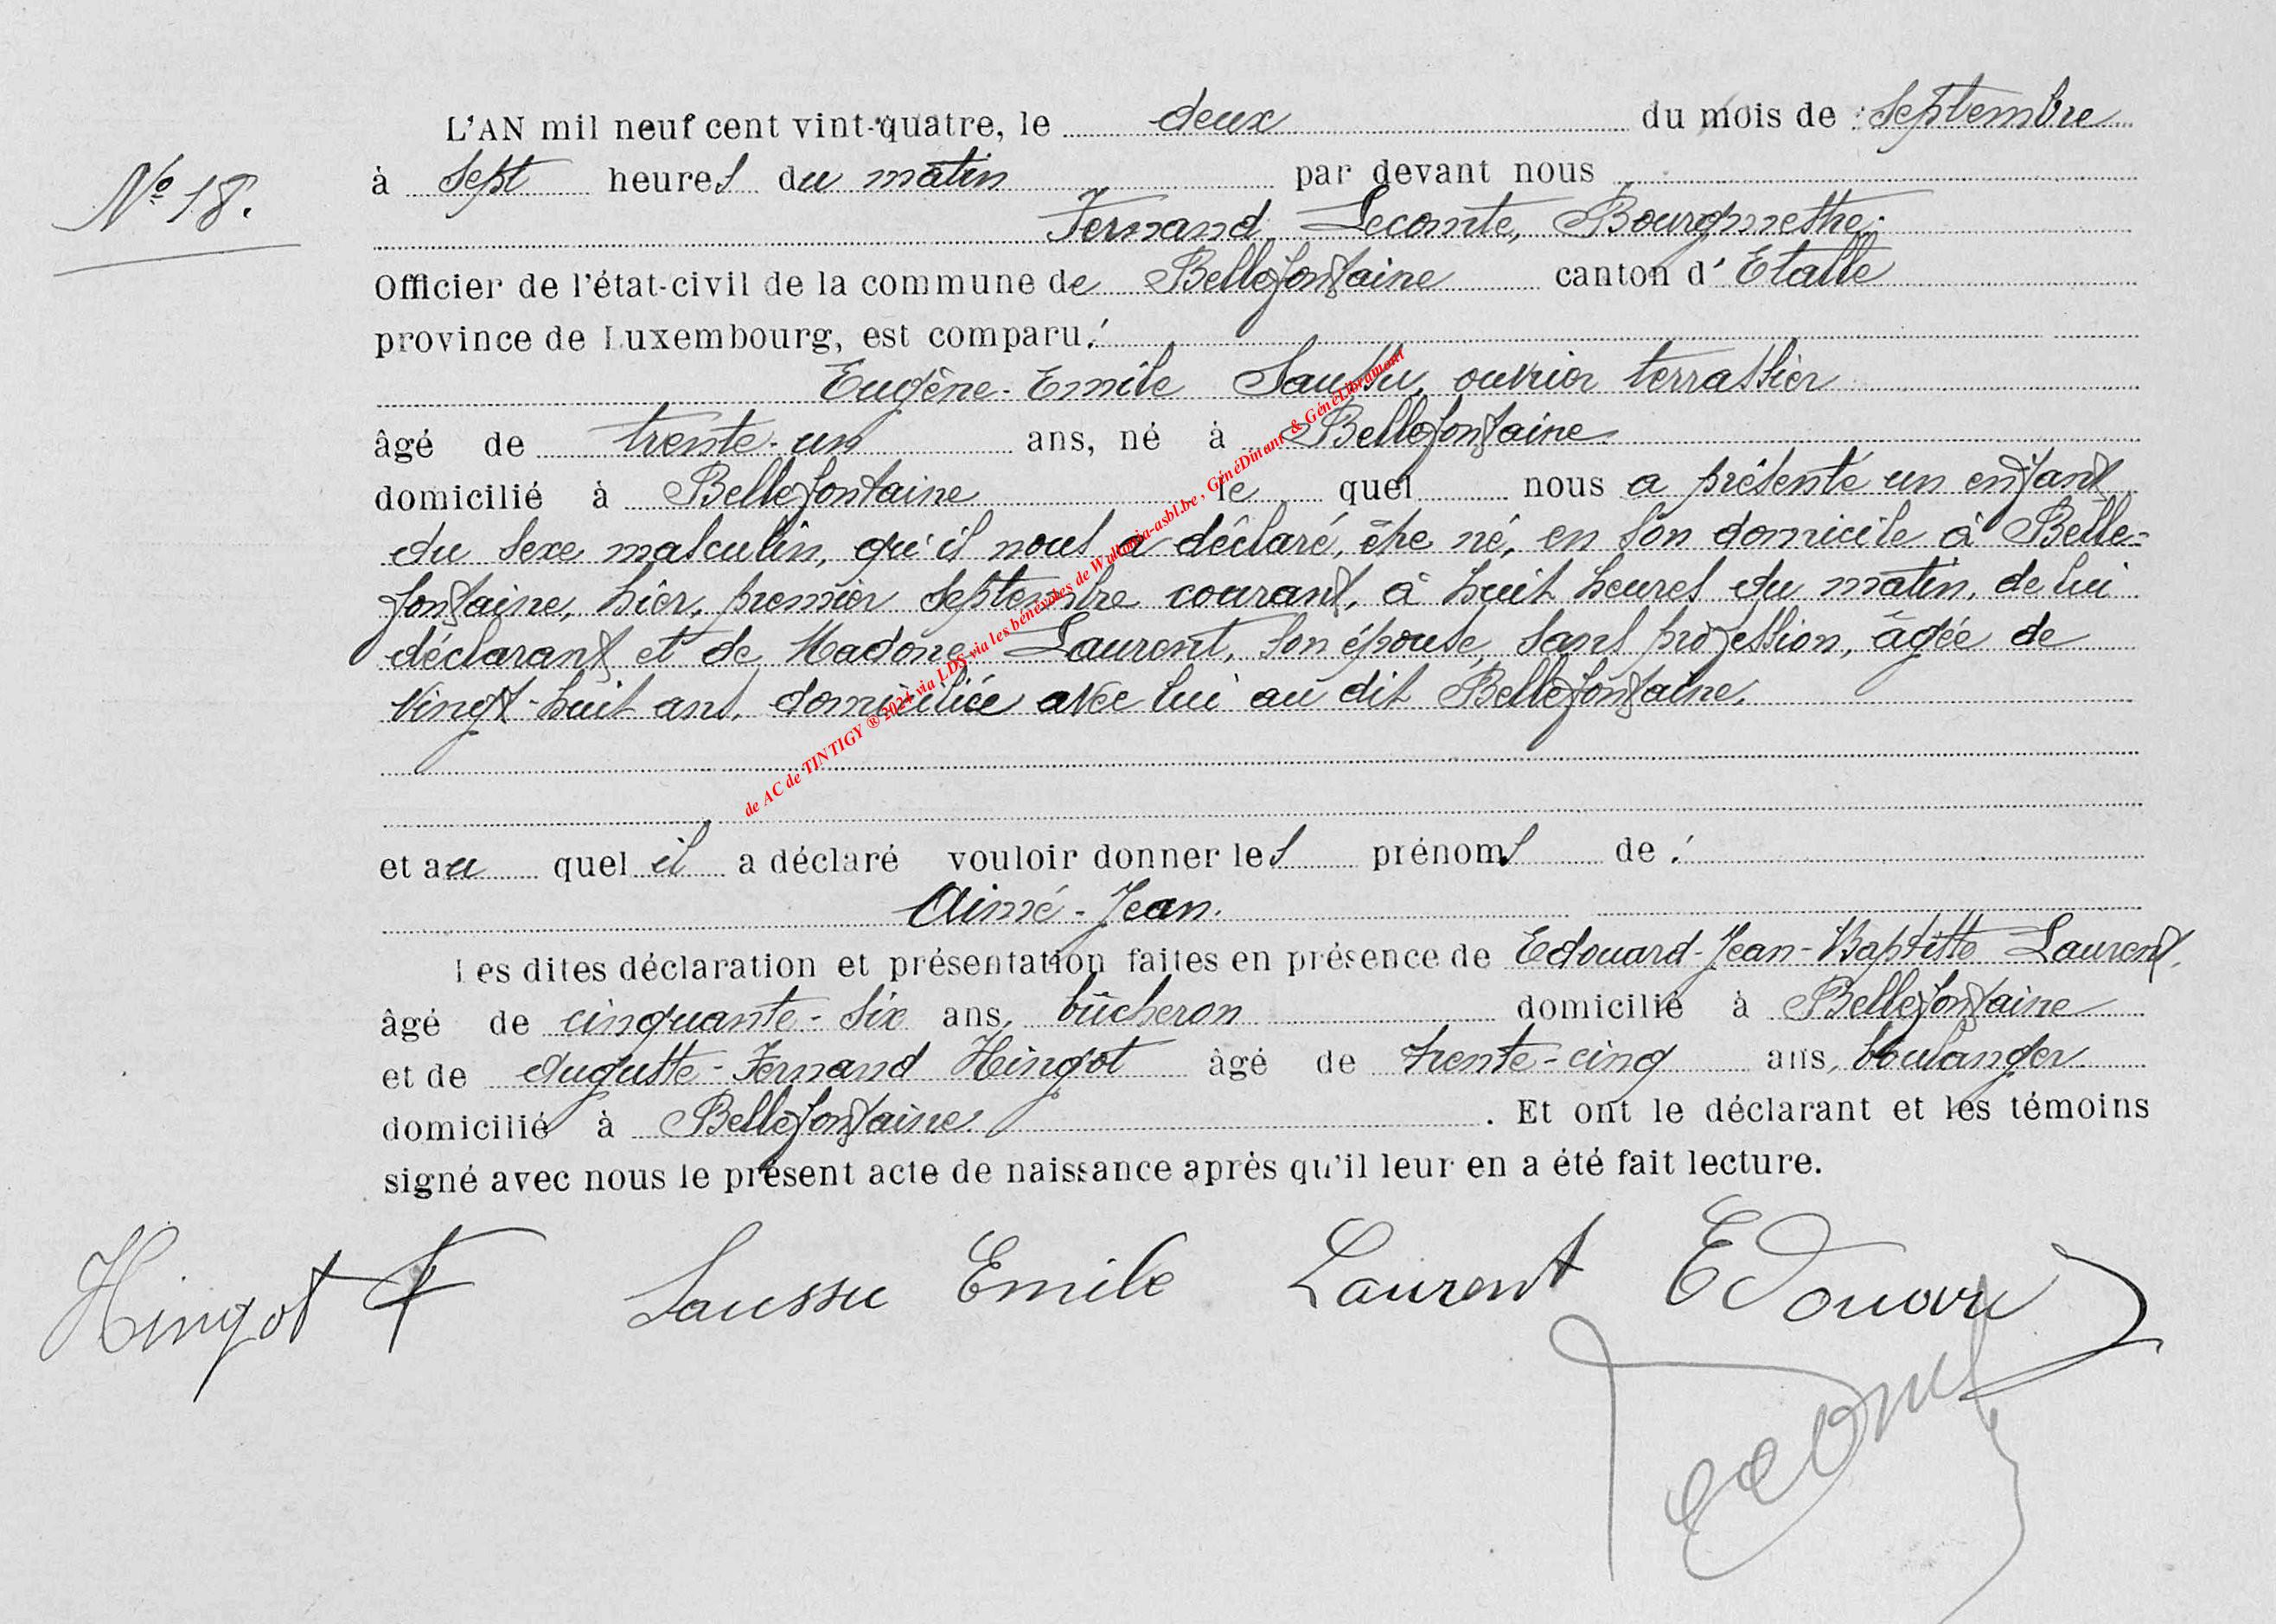 L'AN mil neuf cent vint-quatre, le deux du mois de : Septembre
N° 18.
à sept heures du matin par devant nous
Fernand Lecomte, Bourgmestre.
Officier de l'état-civil de la commune de Bellefontaine canton d'Etalle
province de Luxembourg, est comparu :
Eugène-Emile Saussu, ouvrier terrassier
âgé de trente-un ans, né à Bellefontaine
domicilié à Bellefontaine le quel nous a présenté un enfant
du sexe masculin, qu'il nous a déclaré, être né, en son domicile à Belle-
fontaine, hier, premier septembre courant, à huit heures du matin, de lui
déclarant et de Madone Laurent, son épouse, sans profession, âgée de
vingt-huit ans, domiciliée avec lui au dit Bellefontaine.
et au quel il a déclaré vouloir donner les prénoms de :
Aimé-Jean.
Les dites déclaration et présentation faites en présence de Edouard-Jean-Baptiste Laurent,
âgé de cinquante-six ans, bûcheron domicilié à Bellefontaine
et de Auguste-Fernand Hingot âgé de trente-cinq ans, boulanger
domicilié à Bellefontaine. Et ont le déclarant et les témoins
signé avec nous le présent acte de naissance après qu'il leur en a été fait lecture.
Hingot F Saussu Emile Laurent Edouard
Lecomte
de AC de TINTIGY ® 2024 via LDS via les bénévoles de Wallonia-asbl.be, GénéDinant & GénéLibramont